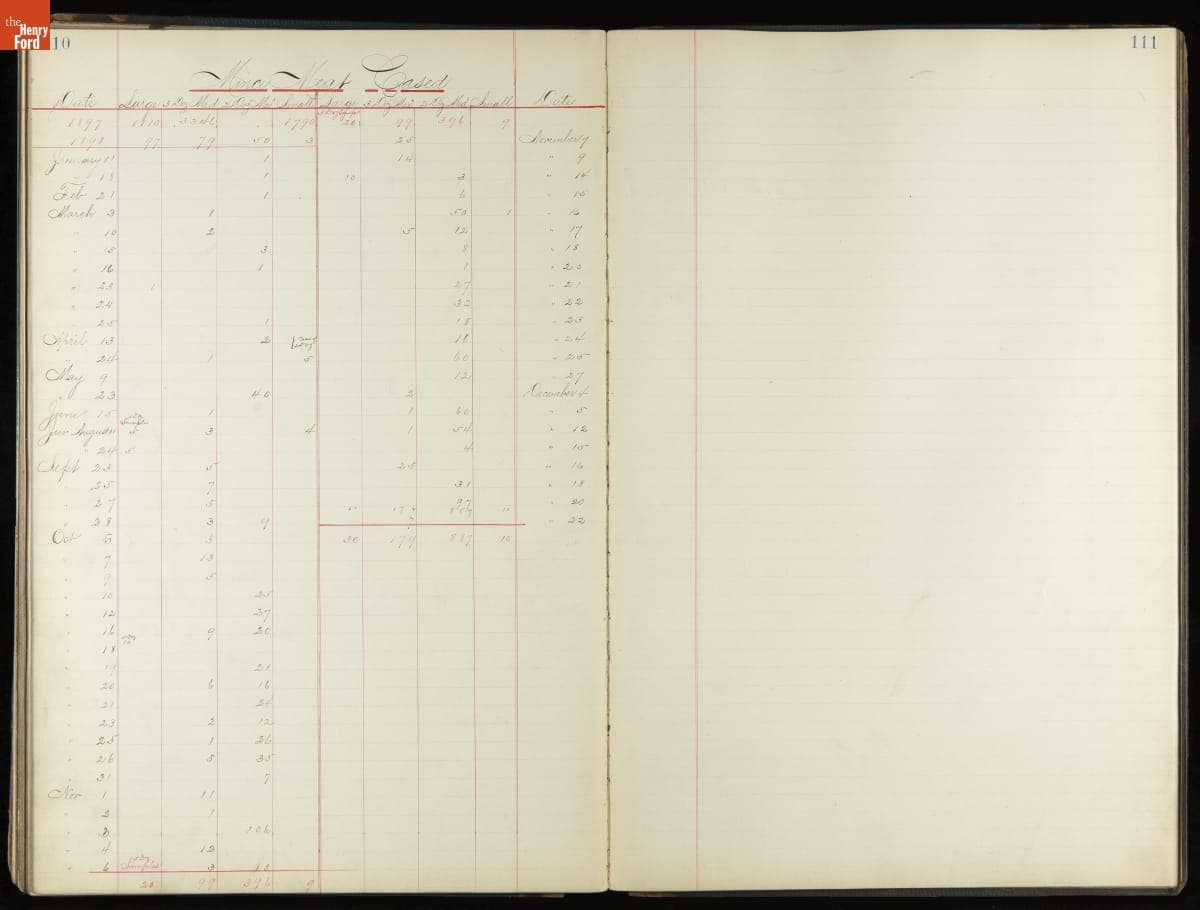 the Henry Ford
10
111
Mince Meat Cased
Date Large 3 Doz Med 2 Doz Med Small Large 3 Doz Med 2 Doz Med Small Date
1897 1810 3346 1790 20 99 396 9
1898 97 79 50 3 25 November 7
January 11 1 14 " 9
" 18 1 10 3 " 14
Feb 21 1 6 " 15
March 3 1 50 1 " 16
" 10 2 5 12 " 17
" 15 3 8 " 18
" 16 1 1 " 20
" 23 1 27 " 21
" 24 32 " 22
" 25 1 18 " 23
April 13 2 16 " 24
" 24 1 5 60 " 25
May 9 12 " 27
" 23 40 2 December 4
June 15 1 1 60 " 5
August 5 3 4 1 54 " 12
" 24 5 4 " 15
Sept 23 5 25 " 16
" 25 7 31 " 18
" 27 5 97 " 20
" 28 3 9 7 " 22
Oct 5 3 20 179 887 10
" 7 13
" 9 5
" 10 25
" 12 27
" 16 9 20
" 18
" 19 21
" 20 6 16
" 21 24
" 23 2 12
" 25 1 26
" 26 5 35
" 31 7
Nov 1 11
" 2 1
" 3 106
" 4 12
" 6 Samples 3 13
20 99 396 9